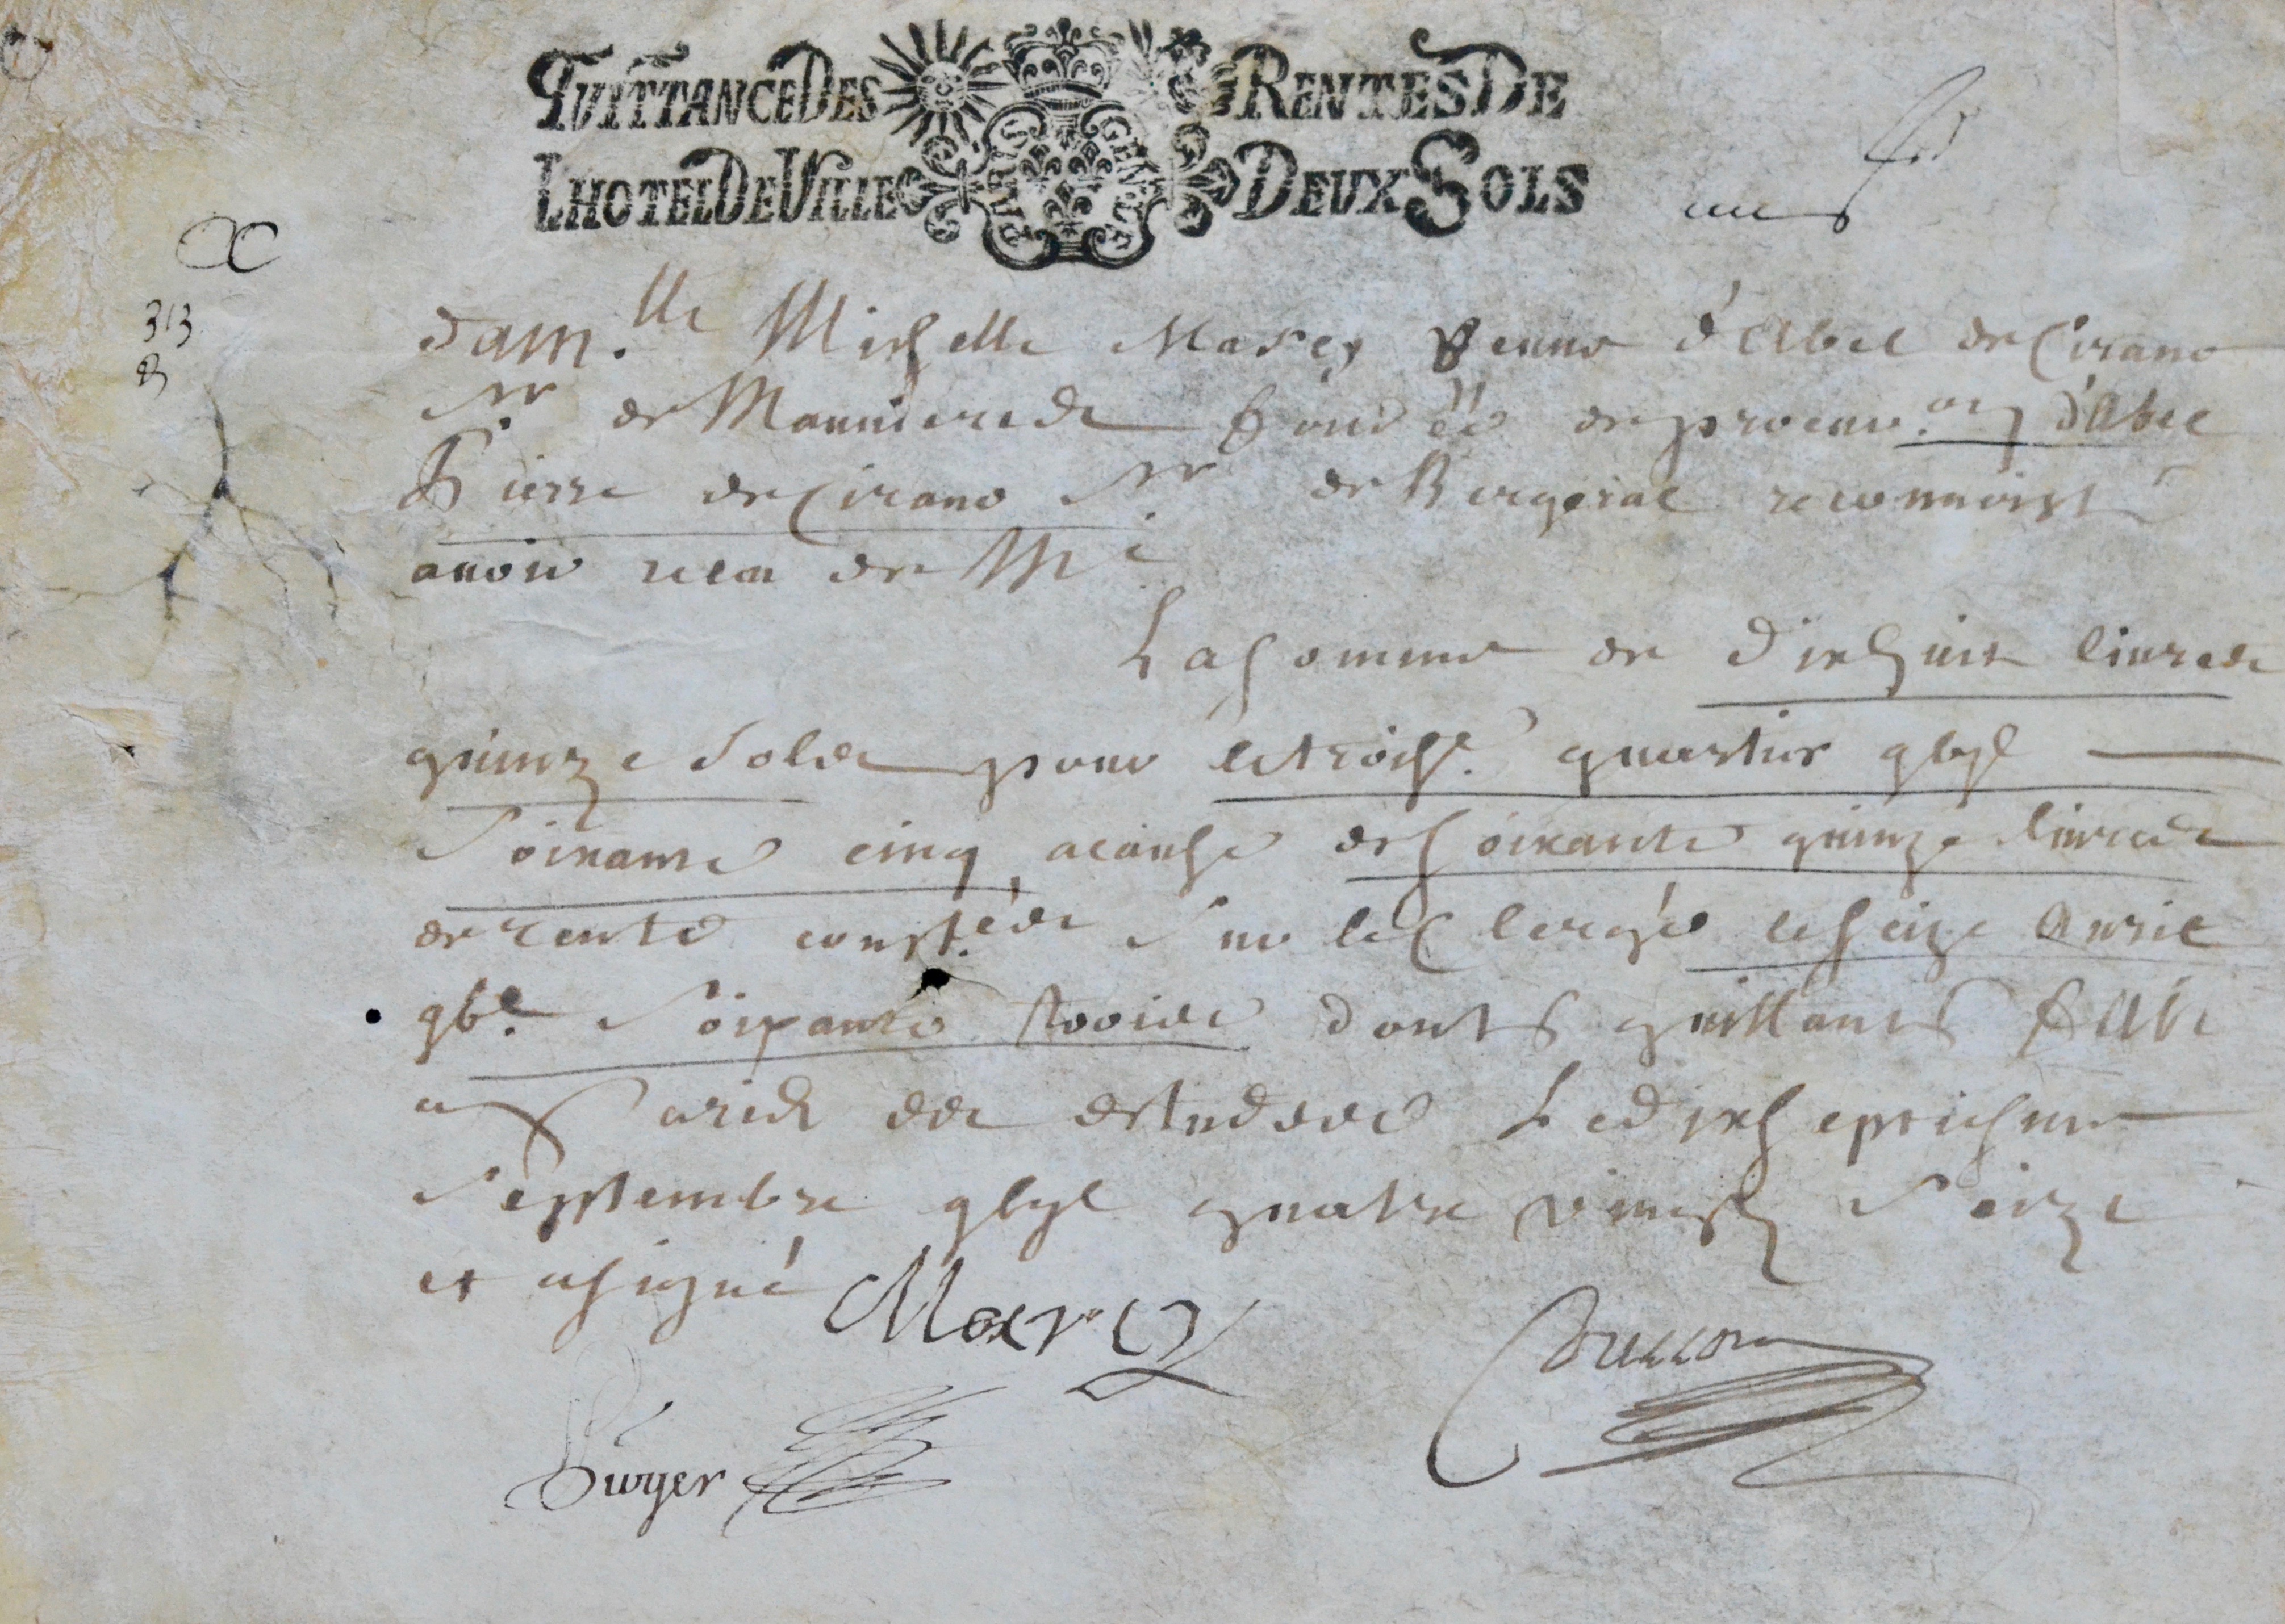 QUITTANCE DES RENTES DE
LHOTEL DE VILLE DEUX SOLS
PARIS GEN
313
Dam.lle Michelle Marcy veuue d'Abel de Cirano
Sr. de Mauuieres fondée de procur.on d'Abel
Pierre de Cirano Sr. de Bergerac reconnoist
auoir receu de Me
La somme de dixhuit liures
quinze sols pour le troise. quartier gbjc
soixante cinq acause de soixante quinze liures
de rente const.ées sur le Clergé le seize Auril
gbc. soixante trois dont quittance faite
a Paris es estudes le dixseptiesme
septembre gbjc quatre vingtz seize
et a signé Marcy